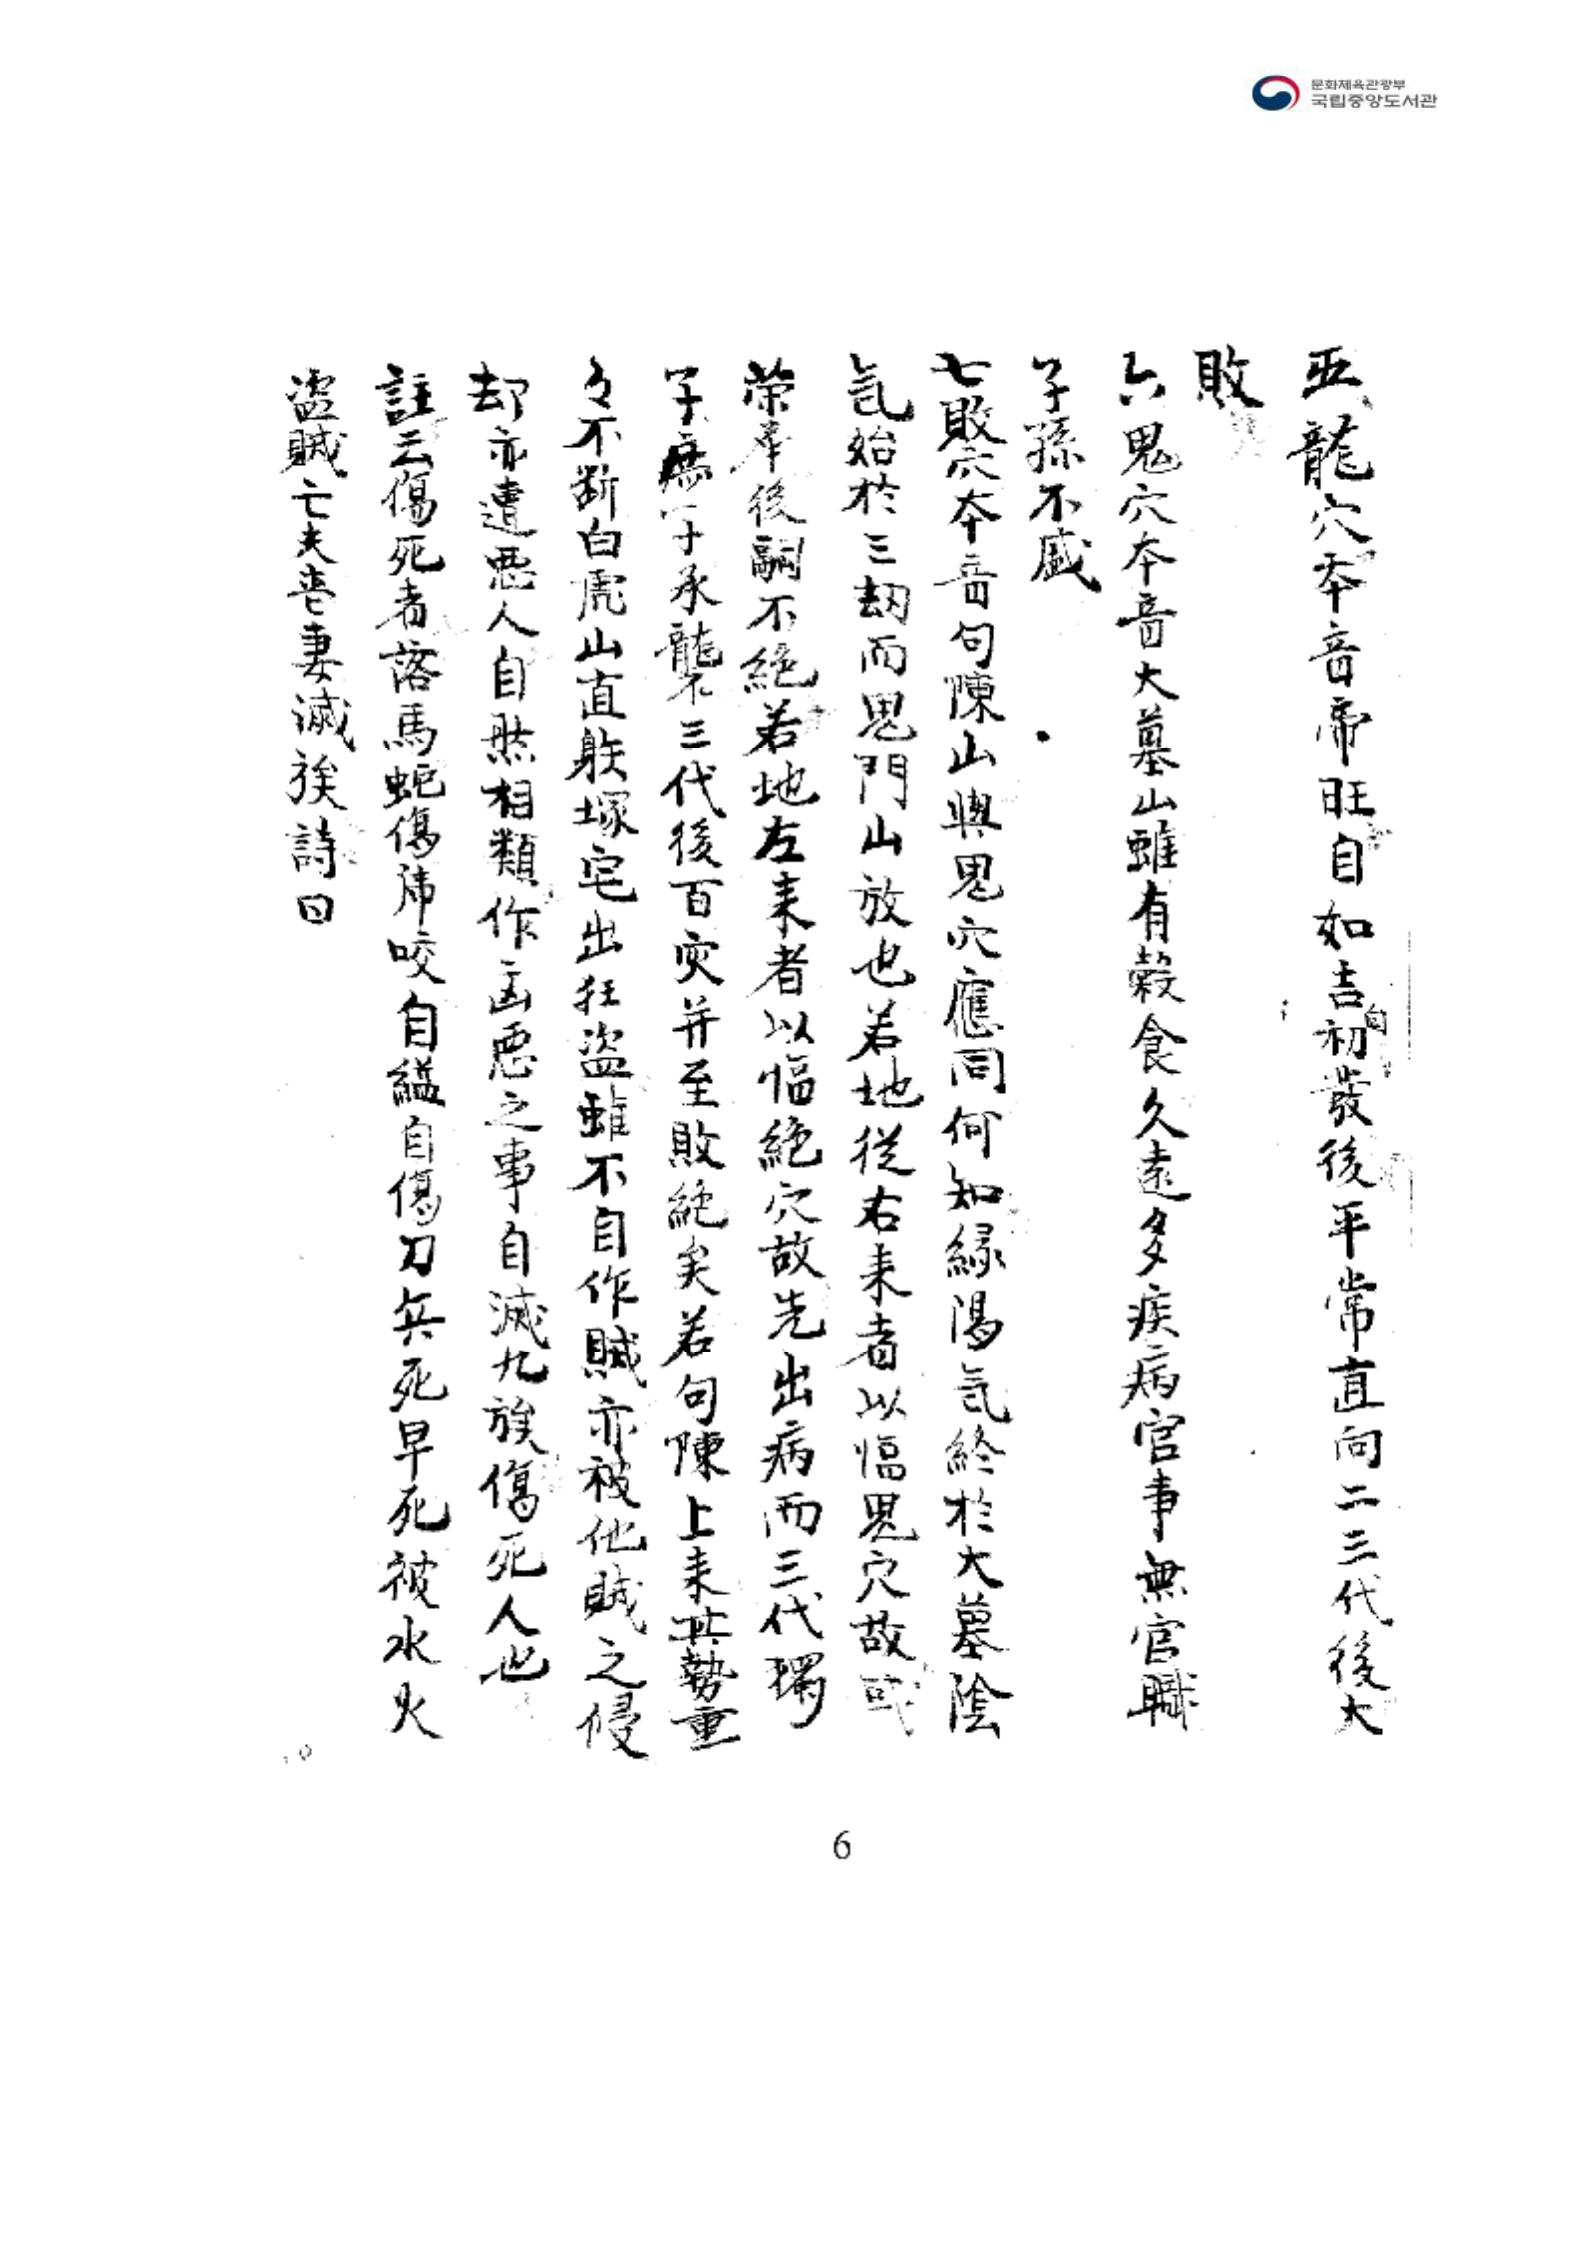 문화체육관광부
국립중앙도서관
五龍穴本音帝旺自如吉初發後平常直向二三代後大
敗
六鬼穴本音大墓山雖有穀食久遠多疾病官事無官職
子孫不盛
七敗穴本音句陳山與鬼穴應同何知緣陽気終於大墓陰
気始於三刼而鬼門山放也若地從右来者以愊鬼穴故或
荣奉後嗣不絶若地左来者以愊絶穴故先出病而三代獨
子無子承襲三代後百灾并至敗絶矣若句陳上来其勢重
々不断白虎山直躰塚宅出狂盜雖不自作賊亦被他賊之侵
却亦遭悪人自然相類作凶悪之事自滅九族傷死人也
註云傷死者落馬蛇傷虎咬自縊自傷刀兵死早死被水火
盜賊亡夫喪妻滅族詩曰
6